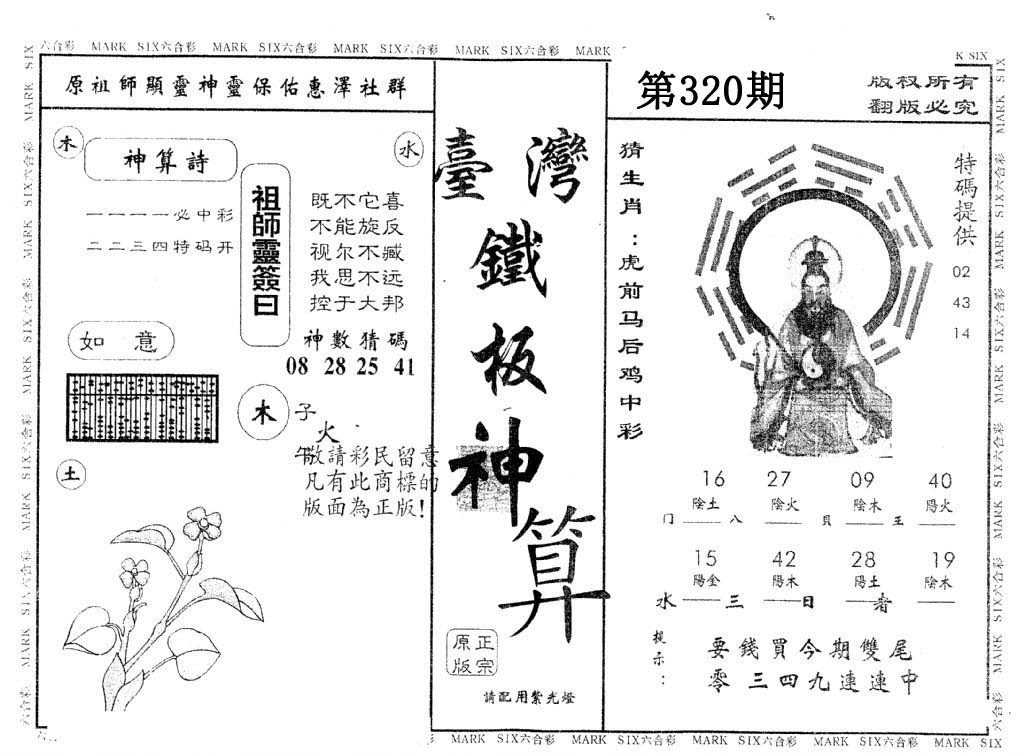 六合彩 MARK SIX六合彩 MARK SIX六合彩 MARK SIX六合彩 MARK SIX六合彩 MARK
K SIX
原祖師顯靈神靈保佑惠澤社群
第320期
版权所有
翻版必究
木
水
神算詩
一一一一必中彩
二二三四特码开
祖師靈簽曰
既不它喜
不能旋反
视尔不臧
我思不远
控于大邦
神數猜碼
08 28 25 41
如意
木
子
火
午
敬請彩民留意
凡有此商標的
版面為正版!
土
臺灣
鐵
板
神
算
正宗
原版
請配用紫光燈
猜生肖:虎前马后鸡中彩
特碼提供
02
43
14
16 27 09 40
陰土 陰火 陰木 陽火
门 八 貝 王
15 42 28 19
陽金 陽木 陽土 陰木
水 三 日 者
提示:
要錢買今期雙尾
零三四九連連中
MARK SIX六合彩 MARK SIX六合彩 MARK SIX六合彩 MARK SIX六合彩 MARK SIX